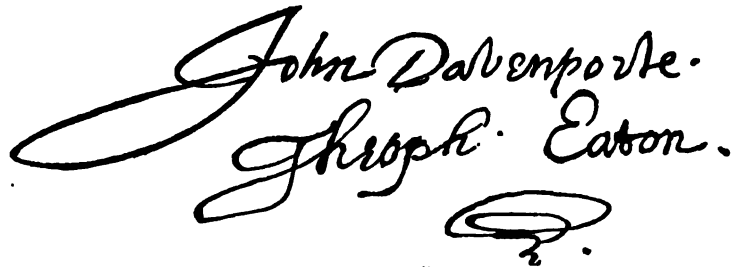 John Davenporte.
Theoph. Eaton.